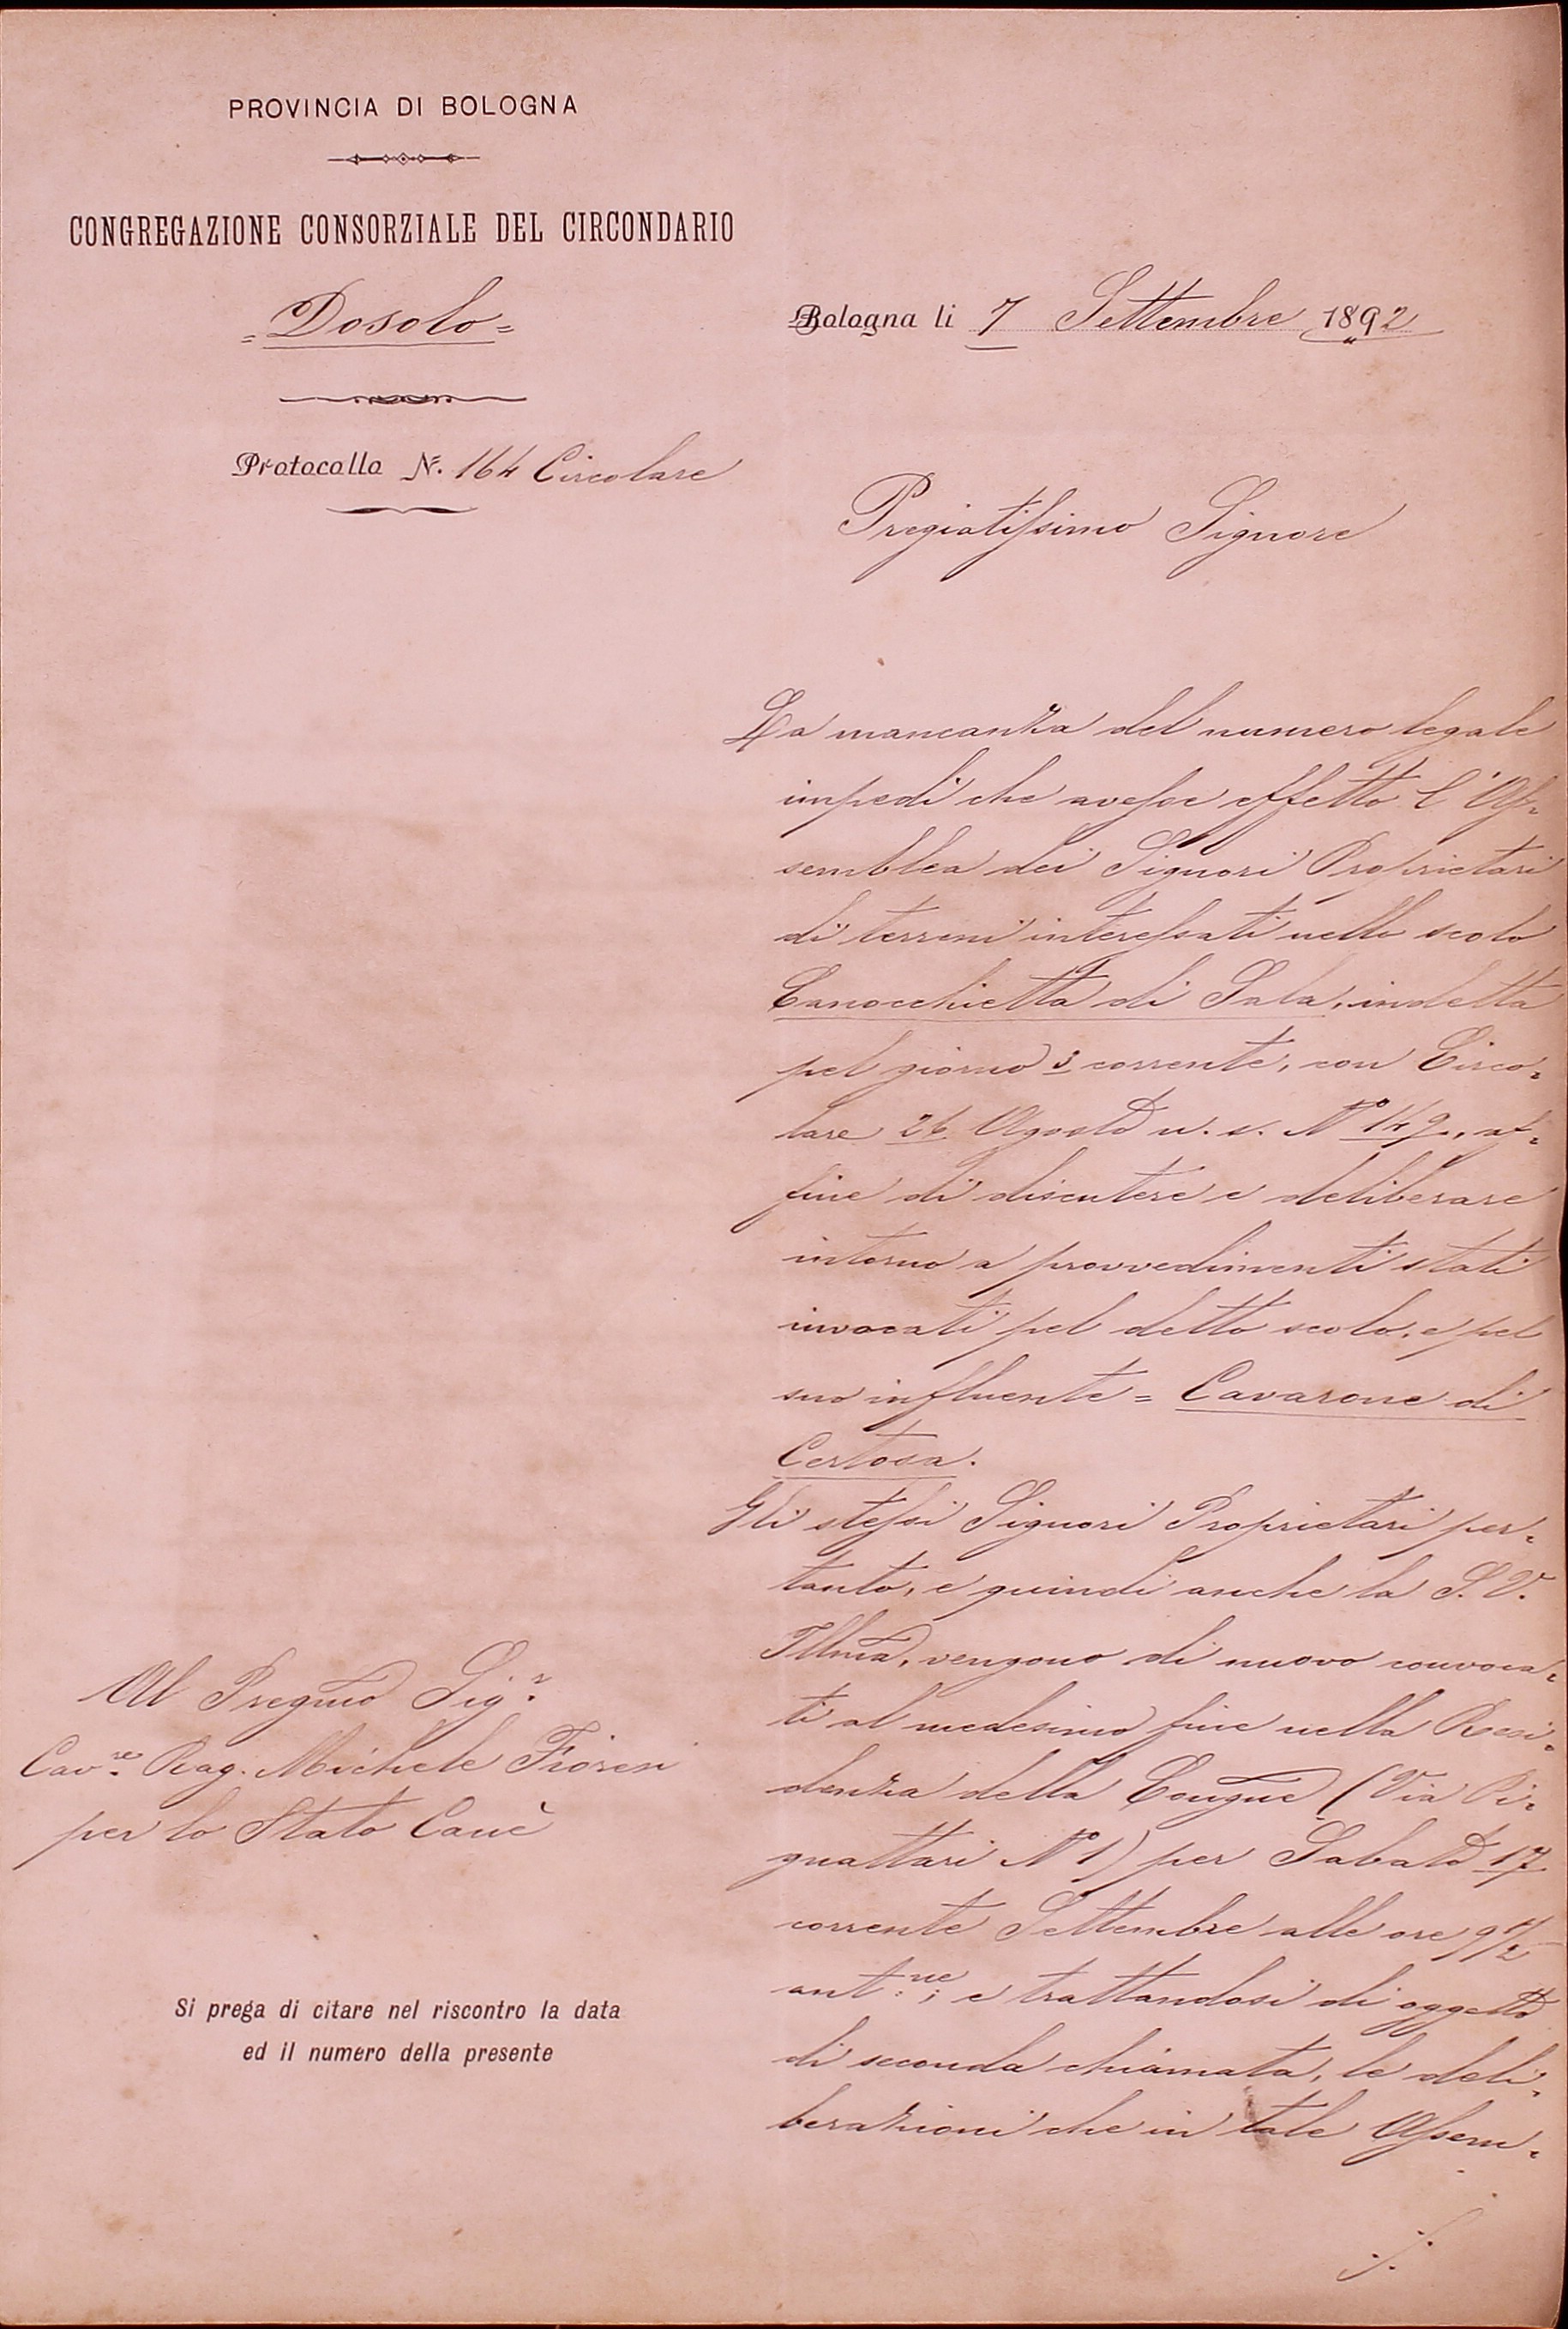 PROVINCIA DI BOLOGNA
CONGREGAZIONE CONSORZIALE DEL CIRCONDARIO
= Dosolo =
Protocollo N. 164 Circolare
Bologna li 7 Settembre 1892
Pregiatissimo Signore
La mancanza del numero legale
impedì che avesse effetto l'As=
semblea dei Signori Proprietari
di terreni interessati nello scolo
Canocchietta di Sala, indetta
pel giorno 3 corrente, con Circo=
lare 26 Agosto u. s. N° 149, af=
fine di discutere e deliberare
intorno a provvedimenti stati
invocati pel detto scolo, e pel
suo influente = Cavarone di
Certosa.
Gli stessi Signori Proprietari per=
tanto, e quindi anche la S. V.
Illma, vengono di nuovo convoca=
ti al medesimo fine nella Resi=
denza della Congne (Via Pi=
gnattari N° 1) per Sabato 17
corrente Settembre alle ore 9 1/2
ant.ne; e trattandosi di oggetto
di seconda chiamata, le deli=
berazioni che in tale Assem=
./.
Al Pregmo Sigr.
Cav.re Rag. Michele Fioresi
per lo Stato Canè
Si prega di citare nel riscontro la data
ed il numero della presente